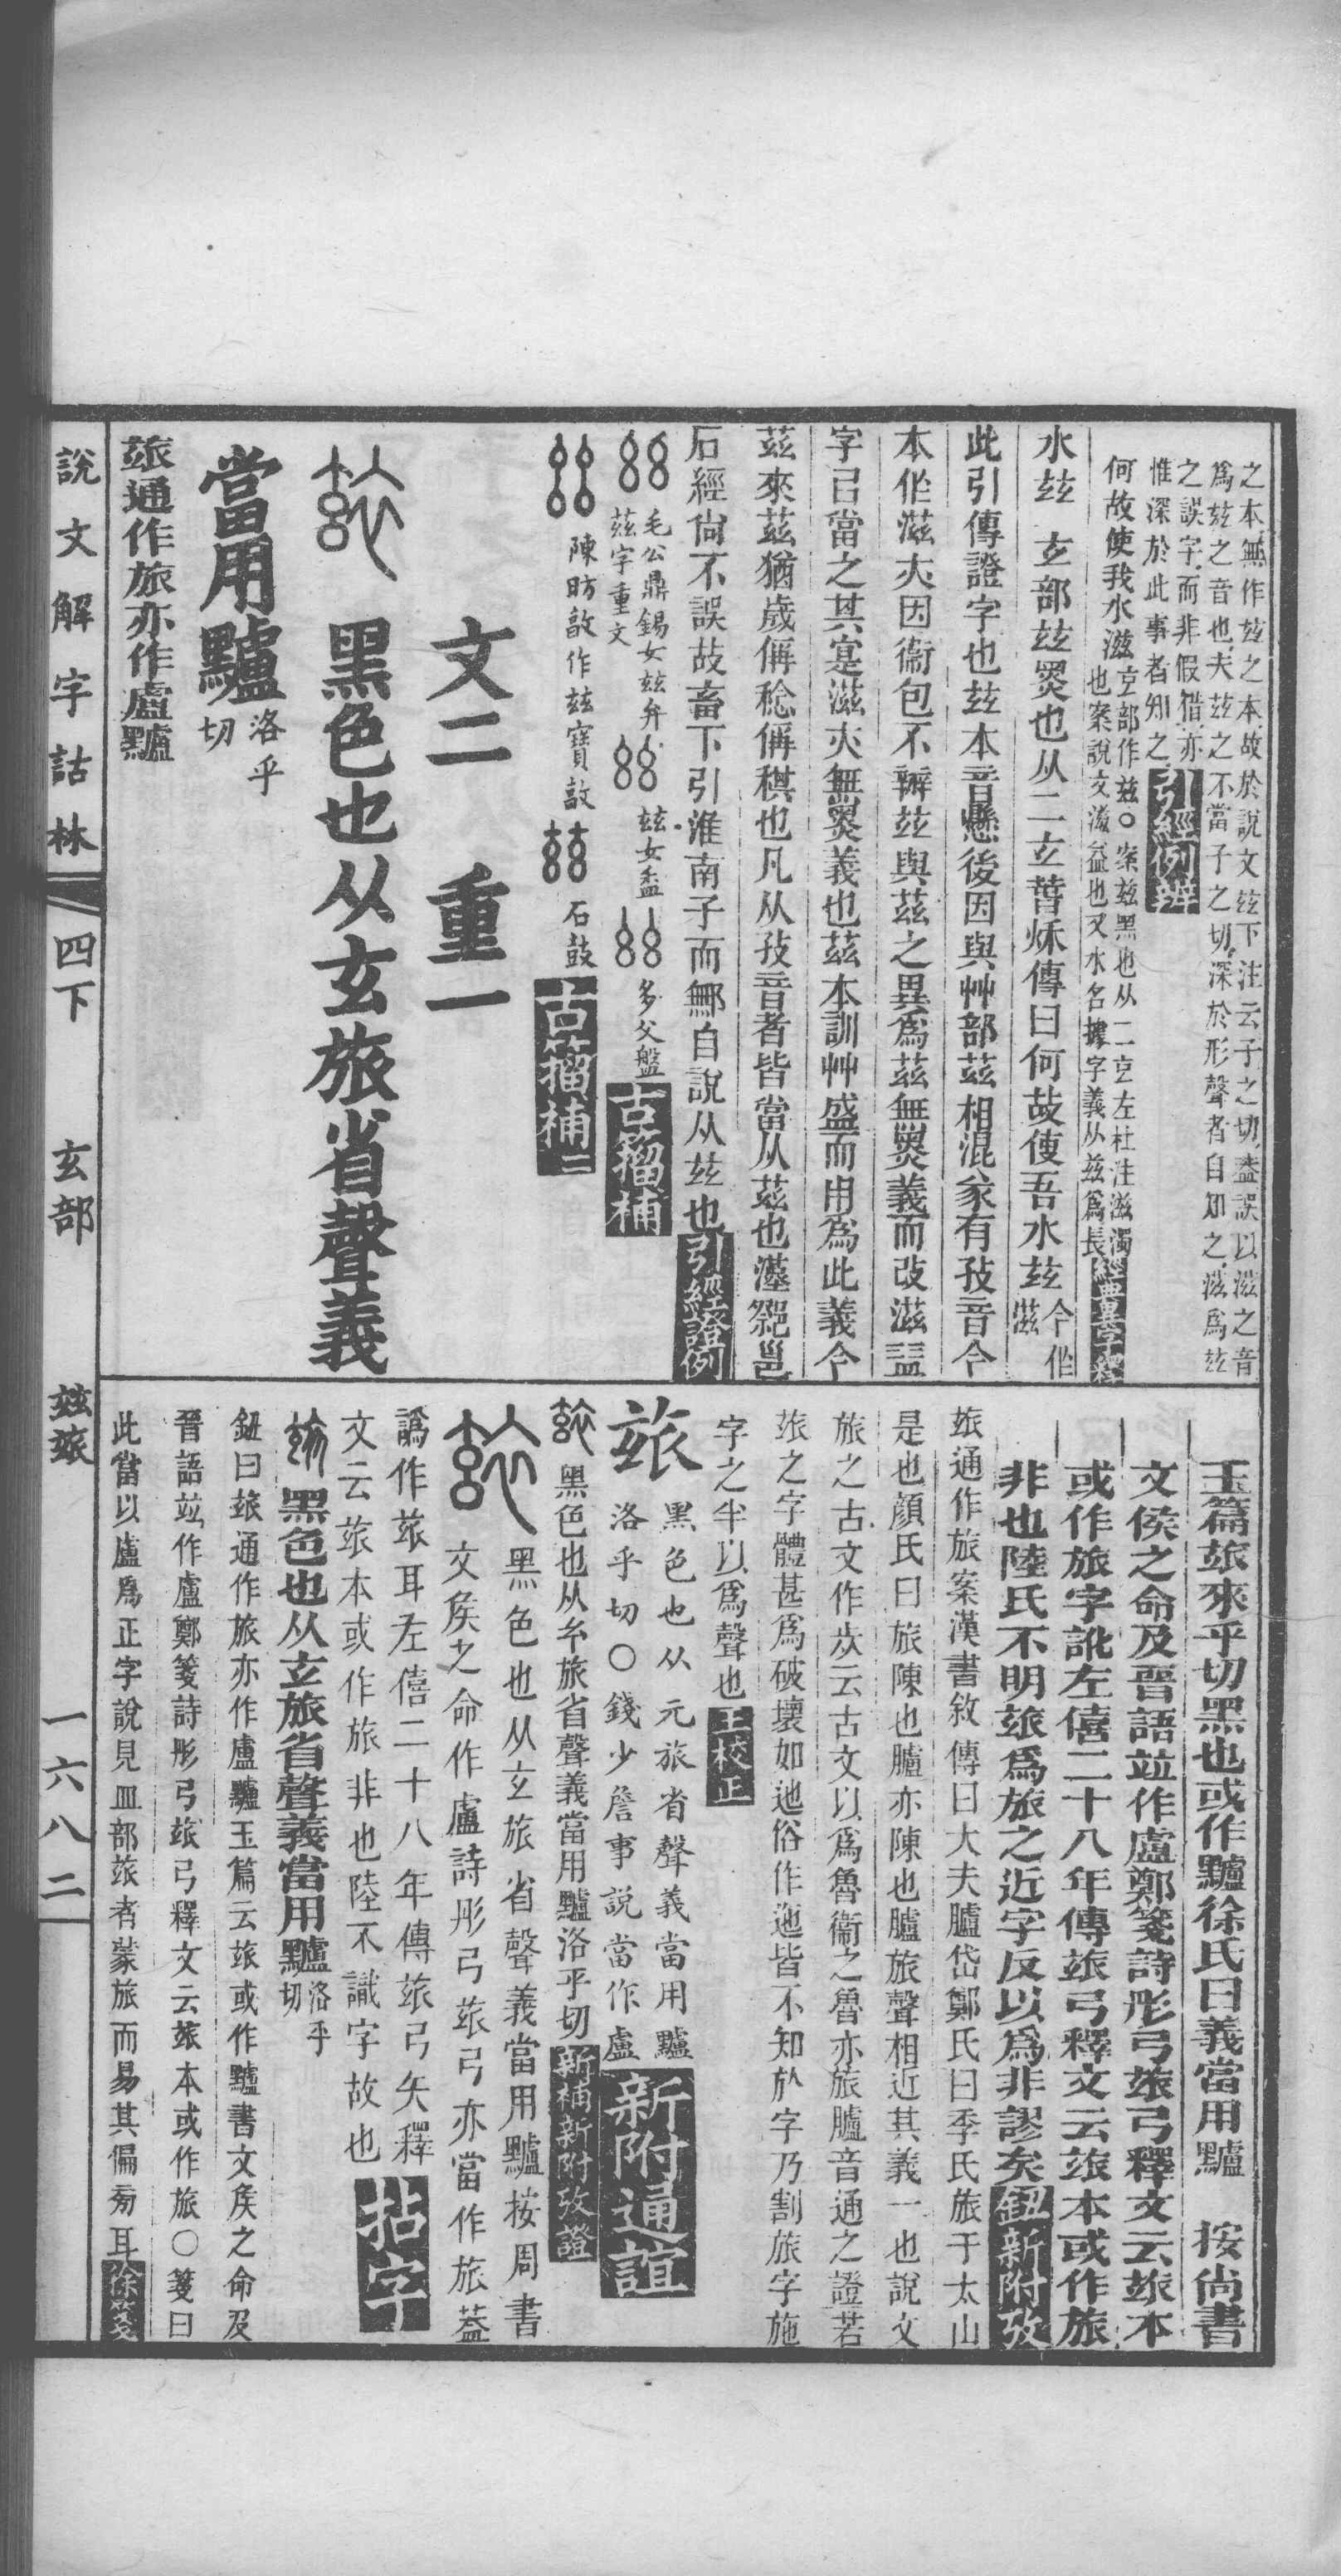 之本無作玆之本故於說文玆下注云子之切盍誤以滋之音
爲玆之音也夫玆之不當子之切深於形聲者自知之滋爲玆
之誤字而非假借亦
惟深於此事者知之引經例辨
何故使我水滋玄部作玆○案玆黑也从二玄左杜注滋濁
也案說文滋益也又水名據字義从玆爲長經典異字釋
水玆　玄部玆㬪也从二玄萅秌傳曰何故使吾水玆今作
滋
此引傳證字也玆本音懸後因與艸部茲相混㒸有孜音今
本作滋灻因衞包不辧玆與茲之異爲茲無㬪義而改滋
字㠯當之其寔滋灻無㬪義也茲本訓艸盛而用爲此義今
茲來茲猶歲偁稔偁稘也凡从孜音者皆當从茲也
石經尙不誤故畜下引淮南子而鄦自說从玆也引經證例
毛公鼎錫女玆弁
茲字重文
玆女盉
多父盤
古籀補
陳昉敦作玆寶敦
石鼓
古籀補二
文二　重一
黑色也从玄旅省聲義
當用驢洛乎
切
玈通作旅亦作盧黸
玉篇玈來乎切黑也或作黸徐氏曰義當用黸　按尚書
文侯之命及晉語竝作盧鄭箋詩彤弓玈弓釋文云玈本
或作旅字訛左僖二十八年傳玈弓釋文云玈本或作旅
非也陸氏不明玈爲旅之近字反以爲非謬矣鈕新附攷
玈通作旅案漢書敘傳曰大夫臚岱鄭氏曰季氏旅于太山
是也顏氏曰旅陳也臚亦陳也臚旅聲相近其義一也說文
旅之古文作㫊云古文以爲魯衞之魯亦旅臚音通之證若
玈之字體甚爲破壞如迆俗作迤皆不知於字乃割旅字施
字之半以爲聲也王校正
玈　黑色也从元旅省聲義當用黸
洛乎切○錢少詹事說當作盧新附通誼
黑色也从糸旅省聲義當用黸洛乎切新補新附攷證
黑色也从玄旅省聲義當用黸按周書
文矦之命作盧詩彤弓玈弓亦當作旅葢
譌作玈耳左僖二十八年傳玈弓矢釋
文云玈本或作旅非也陸不識字故也拈字
黑色也从玄旅省聲義當用黸洛乎
切
鈕曰玈通作旅亦作盧黸玉篇云玈或作黸書文矦之命及
晉語竝作盧鄭箋詩彤弓玈弓釋文云玈本或作旅○箋曰
此當以盧爲正字說見皿部玈者蒙旅而易其偏旁耳徐箋
說文解字詁林　四下　玄部　玆玈　一六八二